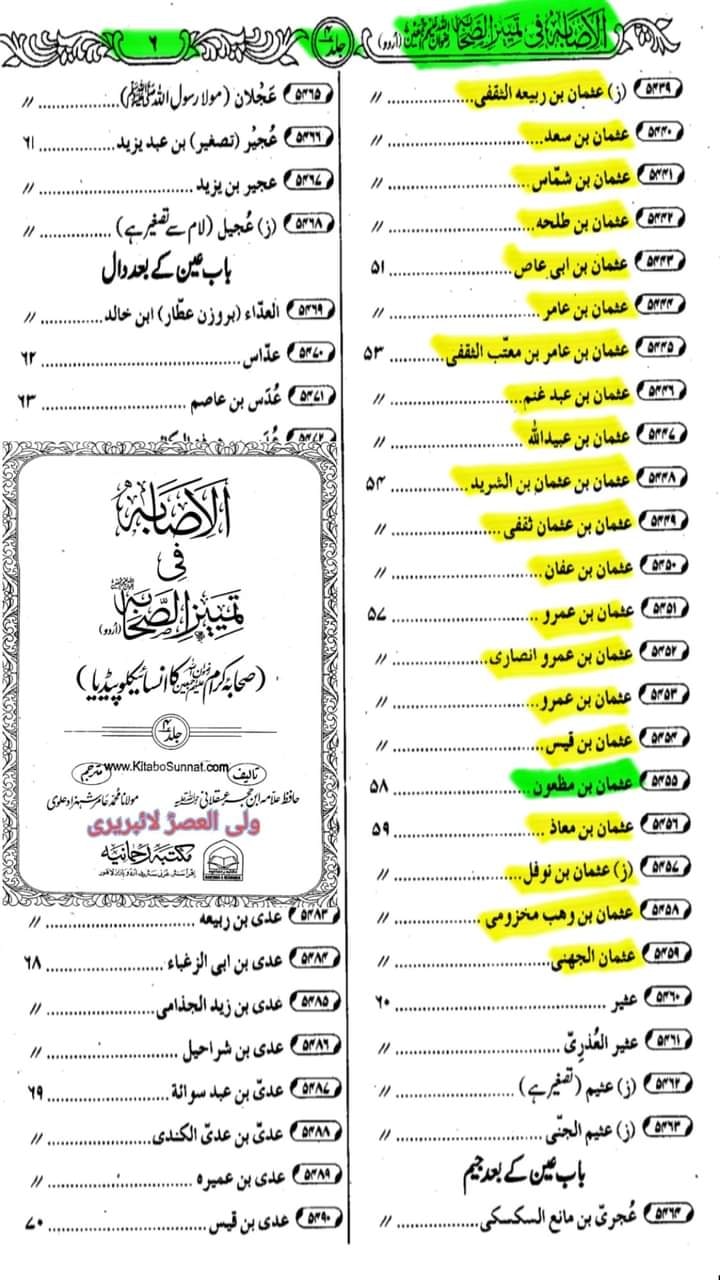 الاصابہ فی تمییز الصحابہ (اُردو) جلد ۴ ۶
۵۴۳۹ (ز) عثمان بن ربیعہ الثقفی .......... //
۵۴۴۰ عثمان بن سعد .......... //
۵۴۴۱ عثمان بن شمّاس .......... //
۵۴۴۲ عثمان بن طلحہ .......... //
۵۴۴۳ عثمان بن ابی عاص .......... ۵۱
۵۴۴۴ عثمان بن عامر .......... //
۵۴۴۵ عثمان بن عامر بن معتّب الثقفی .......... ۵۳
۵۴۴۶ عثمان بن عبد غنم .......... //
۵۴۴۷ عثمان بن عبیداللہ .......... //
۵۴۴۸ عثمان بن عثمان بن الشرید .......... ۵۴
۵۴۴۹ عثمان بن عثمان ثقفی .......... //
۵۴۵۰ عثمان بن عفان .......... //
۵۴۵۱ عثمان بن عمرو .......... ۵۷
۵۴۵۲ عثمان بن عمرو انصاری .......... //
۵۴۵۳ عثمان بن عمرو .......... //
۵۴۵۴ عثمان بن قیس .......... //
۵۴۵۵ عثمان بن مظعون .......... ۵۸
۵۴۵۶ عثمان بن معاذ .......... ۵۹
۵۴۵۷ (ز) عثمان بن نوفل .......... //
۵۴۵۸ عثمان بن وھب مخزومی .......... //
۵۴۵۹ عثمان الجھنی .......... //
۵۴۶۰ عثیر .......... ۶۰
۵۴۶۱ عثیر العُذرِیّ .......... //
۵۴۶۲ (ز) عثیم (تصغیر ہے) .......... //
۵۴۶۳ (ز) عثیم الجنّی .......... //
باب عین کے بعد جیم
۵۴۶۴ عُجریّ بن مانع السکسکی .......... //
۵۴۶۵ عَجْلان (مولا رسول اللہ ﷺ) .......... //
۵۴۶۶ عُجیْر (تصغیر) بن عبد یزید .......... ۶۱
۵۴۶۷ عجیر بن یزید .......... //
۵۴۶۸ (ز) عُجیل (لام سے تصغیر ہے) .......... //
باب عین کے بعد دال
۵۴۶۹ العدّاء (بروزن عطّار) ابن خالد .......... //
۵۴۷۰ عدّاس .......... ۶۲
۵۴۷۱ عُدَس بن عاصم .......... ۶۳
الاصابہ
فی
تمییز الصحابہ (اُردو)
(صحابہ کرام رضوان اللہ علیہم اجمعین کا انسائیکلوپیڈیا)
جلد ۴
www.KitaboSunnat.com
تالیف مترجم
حافظ علامہ ابن حجر عسقلانی رحمۃ اللہ علیہ مولانا محمد عامر شہزاد علوی
ولی العصرؑ لائبریری
مکتبہ رحمانیہ
۵۴۸۳ عدی بن ربیعہ .......... //
۵۴۸۴ عدی بن ابی الزغباء .......... ۶۸
۵۴۸۵ عدی بن زید الجذامی .......... //
۵۴۸۶ عدی بن شراحیل .......... //
۵۴۸۷ عدیّ بن عبد سوائۃ .......... ۶۹
۵۴۸۸ عدیّ بن عدیّ الکندی .......... //
۵۴۸۹ عدی بن عمیرہ .......... //
۵۴۹۰ عدی بن قیس .......... ۷۰